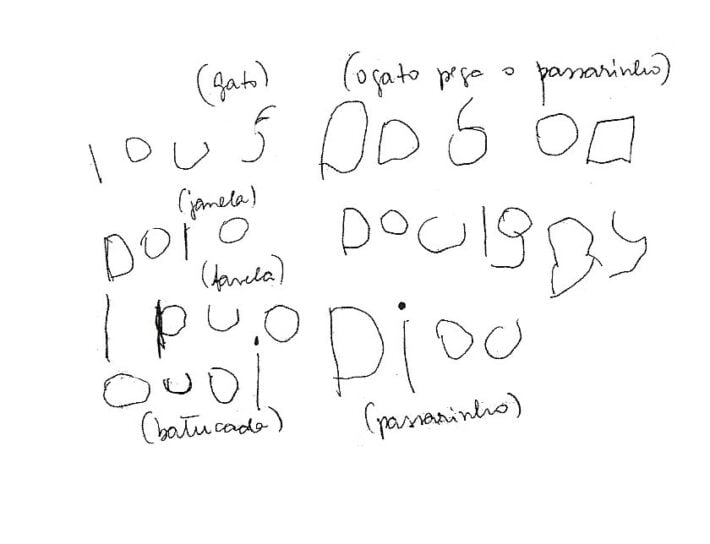 (gato)
(o gato pega o passarinho)
I O U 5
D D 6 O D
(janela)
D O I O
D O U I g B y
I P U O
D i O U
O U O i
(batucada)
(passarinho)